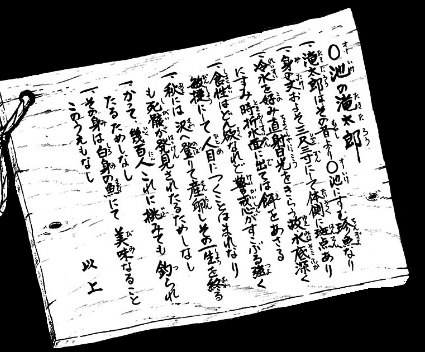 〇池の滝太郎
一、滝太郎はその昔より〇池にすむ珍魚なり
一、身の丈おおよそ三尺三寸にて体側に斑点あり
一、冷水を好み直射日光をきらう故、水底深く
にすみ時折水面に出ては餌をあさる
一、食性はどん欲なれど警戒心がすこぶる強く
敏捷にして人目につくことはまれなり
一、秋には沢へ登りて産卵しその一生を終る
も死骸が発見されたるためしなし
一、かつて、幾百人これに挑みても釣られ
たるためしなし
一、その身は白身の魚にて美味なること
このうえもなし
以上